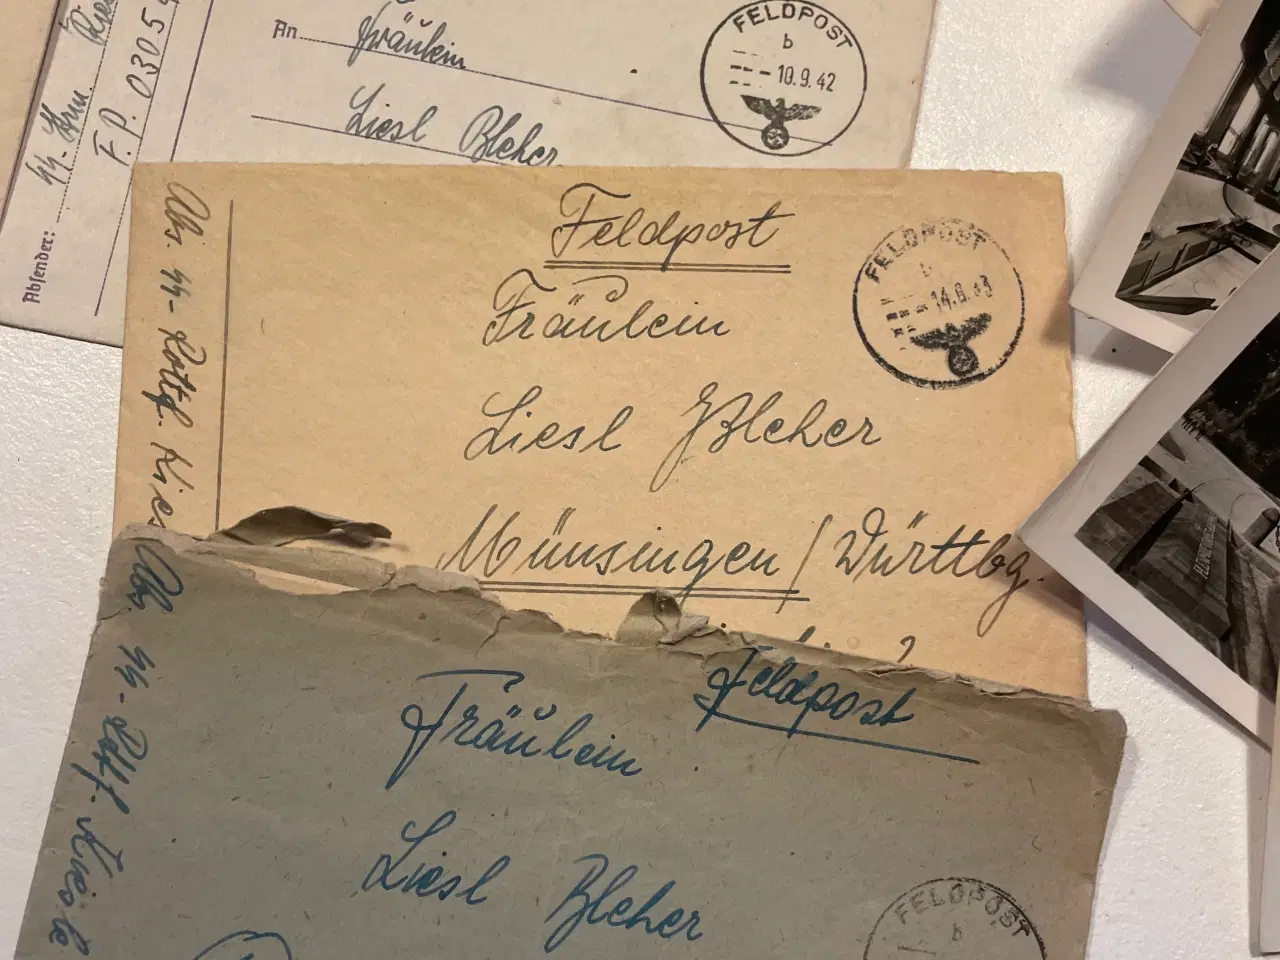 Absender: SS-Strm.
F.P. 03054
An Fräulein
Liesl Bleher
FELDPOST
b
10.9.42
Abs. SS-Rottf. Kies
Feldpost
Fräulein
Liesl Bleher
Münsingen / Württbg.
FELDPOST
b
14.8.43
Abs. SS-Rttf. Kiesle
Feldpost
Fräulein
Liesl Bleher
FELDPOST
b